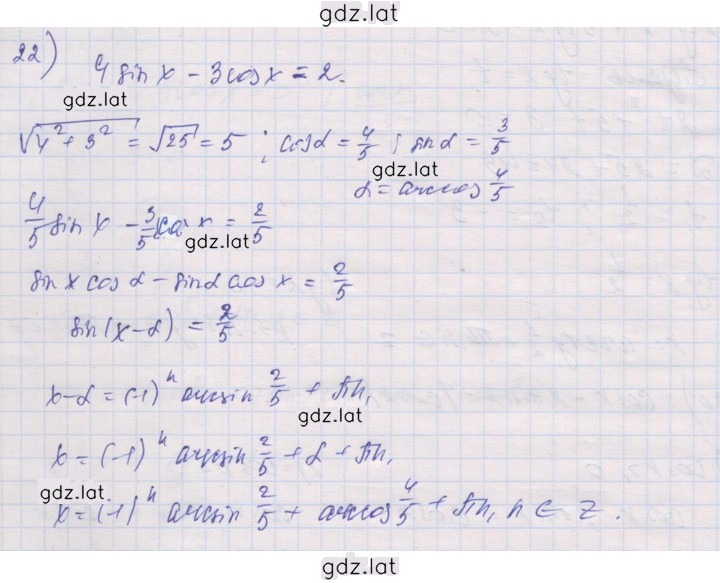 gdz.lat
22) 4 sin x − 3 cos x = 2.
gdz.lat
√4² + 3² = √25 = 5 ; cos α = 4/5 ; sin α = 3/5
gdz.lat
α = arccos 4/5
4/5 sin x − 3/5 cos x = 2/5
gdz.lat
sin x cos α − sin α cos x = 2/5
sin(x − α) = 2/5
x − α = (−1)ⁿ arcsin 2/5 + πn,
gdz.lat
x = (−1)ⁿ arcsin 2/5 + α + πn,
gdz.lat
x = (−1)ⁿ arcsin 2/5 + arccos 4/5 + πn, n ∈ Z.
gdz.lat